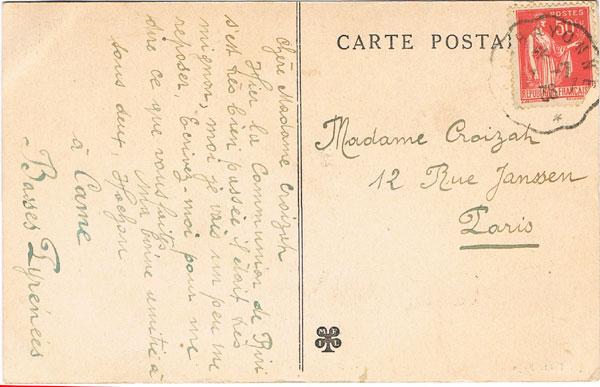 Chère Madame Croizah
Hier la Communion de Riri
s'est très bien passée il était très
mignon, moi je vais un peu me
reposer. Ecrivez-moi pour me
dire ce que vous faites
Ma bonne amitié à
tous deux,
à Came
Basses Pyrénées
CARTE POSTA
POSTES
50
REPUBLIQUE FRANÇAISE
BAYONNE
Madame Croizah
12 Rue Janssen
Paris